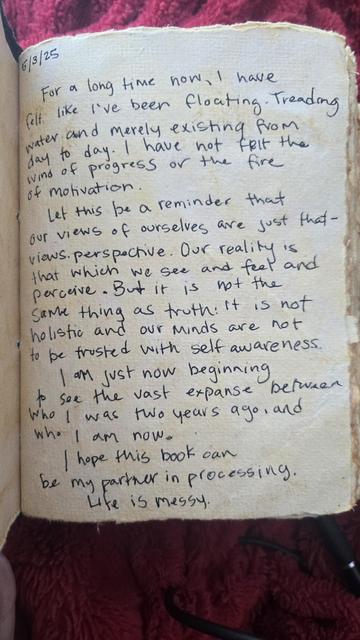 5/3/25
For a long time now, I have
felt like I've been floating. Treading
water and merely existing from
day to day. I have not felt the
wind of progress or the fire
of motivation.
Let this be a reminder that
our views of ourselves are just that-
views. perspective. Our reality is
that which we see and feel and
perceive. But it is not the
same thing as truth. It is not
holistic and our minds are not
to be trusted with self awareness.
I am just now beginning
to see the vast expanse between
who I was two years ago, and
who I am now.
I hope this book can
be my partner in processing.
Life is messy.